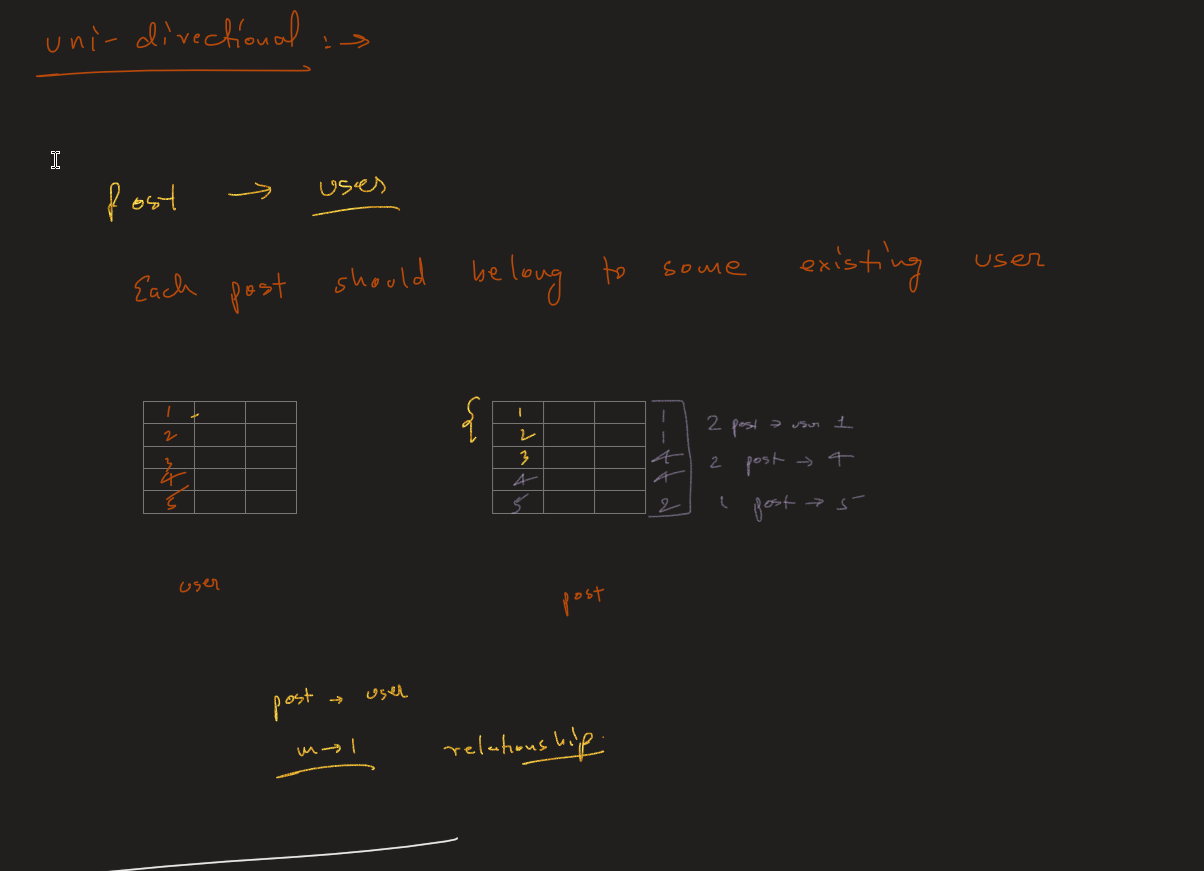 uni-directional :→
Post → user
Each post should belong to some existing user
1
2
3
4
5
user
{
1 1
2 1
3 4
4 4
5 2
2 post → user 1
2 post → 4
1 post → 5
post
post → user
m→1 relationship.